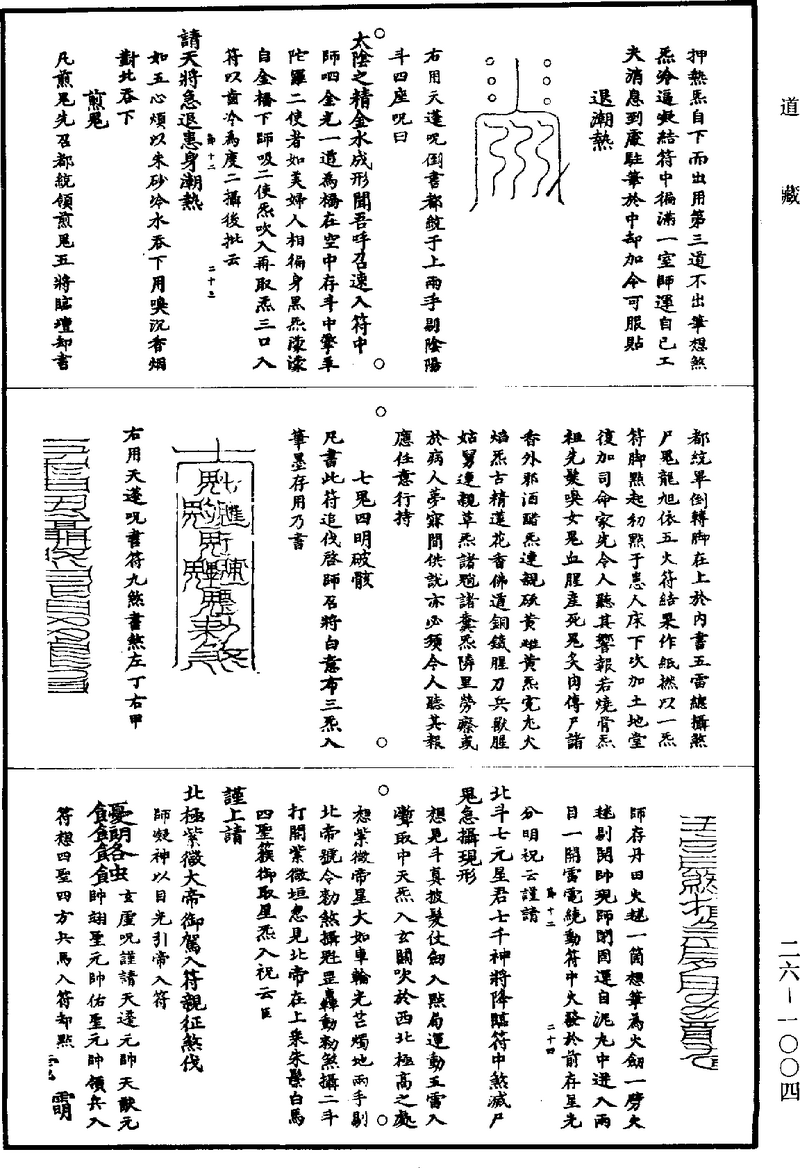 道藏
押熱炁自下而出用第三道不出筆想煞
炁冷逼凝結符中徧滿一室師運自己工
夫消息到處駐筆於中却加令可服貼
退潮熱
右用天蓬呪倒書都統于上兩手剔陰陽
斗四座呪曰
太陰之精金水成形聞吾呼召速入符中
師呬金光一道為橋在空中存斗中擎羊
陀羅二使者如美婦人相徧身黑炁濛濛
自金橋下師吸二使炁吹入再取炁三口入
符以齒冷為度二攝後批云
請天將急退患身潮熱
如五心煩以朱砂冷水吞下用嗅沉香烟
對北吞下
煎鬼
凡煎鬼先召都統領煎鬼五將臨壇却書
都統畢倒轉脚在上於內書五雷總攝煞
尸鬼龍旭依五火符結果作紙撚以一炁
符脚點起初點于患人床下次加土地堂
復加司命家先令人聽其響報若燒骨炁
祖先髮喚女鬼血腥產死鬼炙肉傳尸諸
香外邪酒醋炁連親硫黃雄黃炁寃尤火
焰炁古精蓮花香佛道銅鐵腥刀兵獸腥
姑舅連親草炁諸咒諸糞炁隣里勞瘵或
於病人夢寐間供說亦必須令人聽其報
應任意行持
七鬼四明破骸
凡書此符追伐啓師召將白意布三炁入
筆墨存用乃書
右用天蓬呪書符九煞書煞左丁右甲
師存丹田火趯一箇想筆為火劍一劈火
趯剔開帥現師閉固運自泥丸中迸入兩
目一開雷電繞動符中火發於前存星光
分明祝云謹請
北斗七元星君七千神將降臨符中煞滅尸
鬼急攝現形
想見斗真披髮仗劍入點局運動五雷入
鸞取中天炁入玄關吹於西北極高之處
想紫微帝星大如車輪光芒燭地兩手剔
北帝號令勑煞攝䰢罡轟動勑煞攝二斗
打開紫微垣忽見北帝在上乘朱鬃白馬
四聖簇御取星炁入祝云臣
謹上請
北極紫微大帝御駕入符親征煞伐
師凝神以目光引帝入符
玄虛呪謹請天蓬元帥天猷元
帥翊聖元帥佑聖元帥領兵入
符想四聖四方兵馬入符却點
二六一一〇〇四